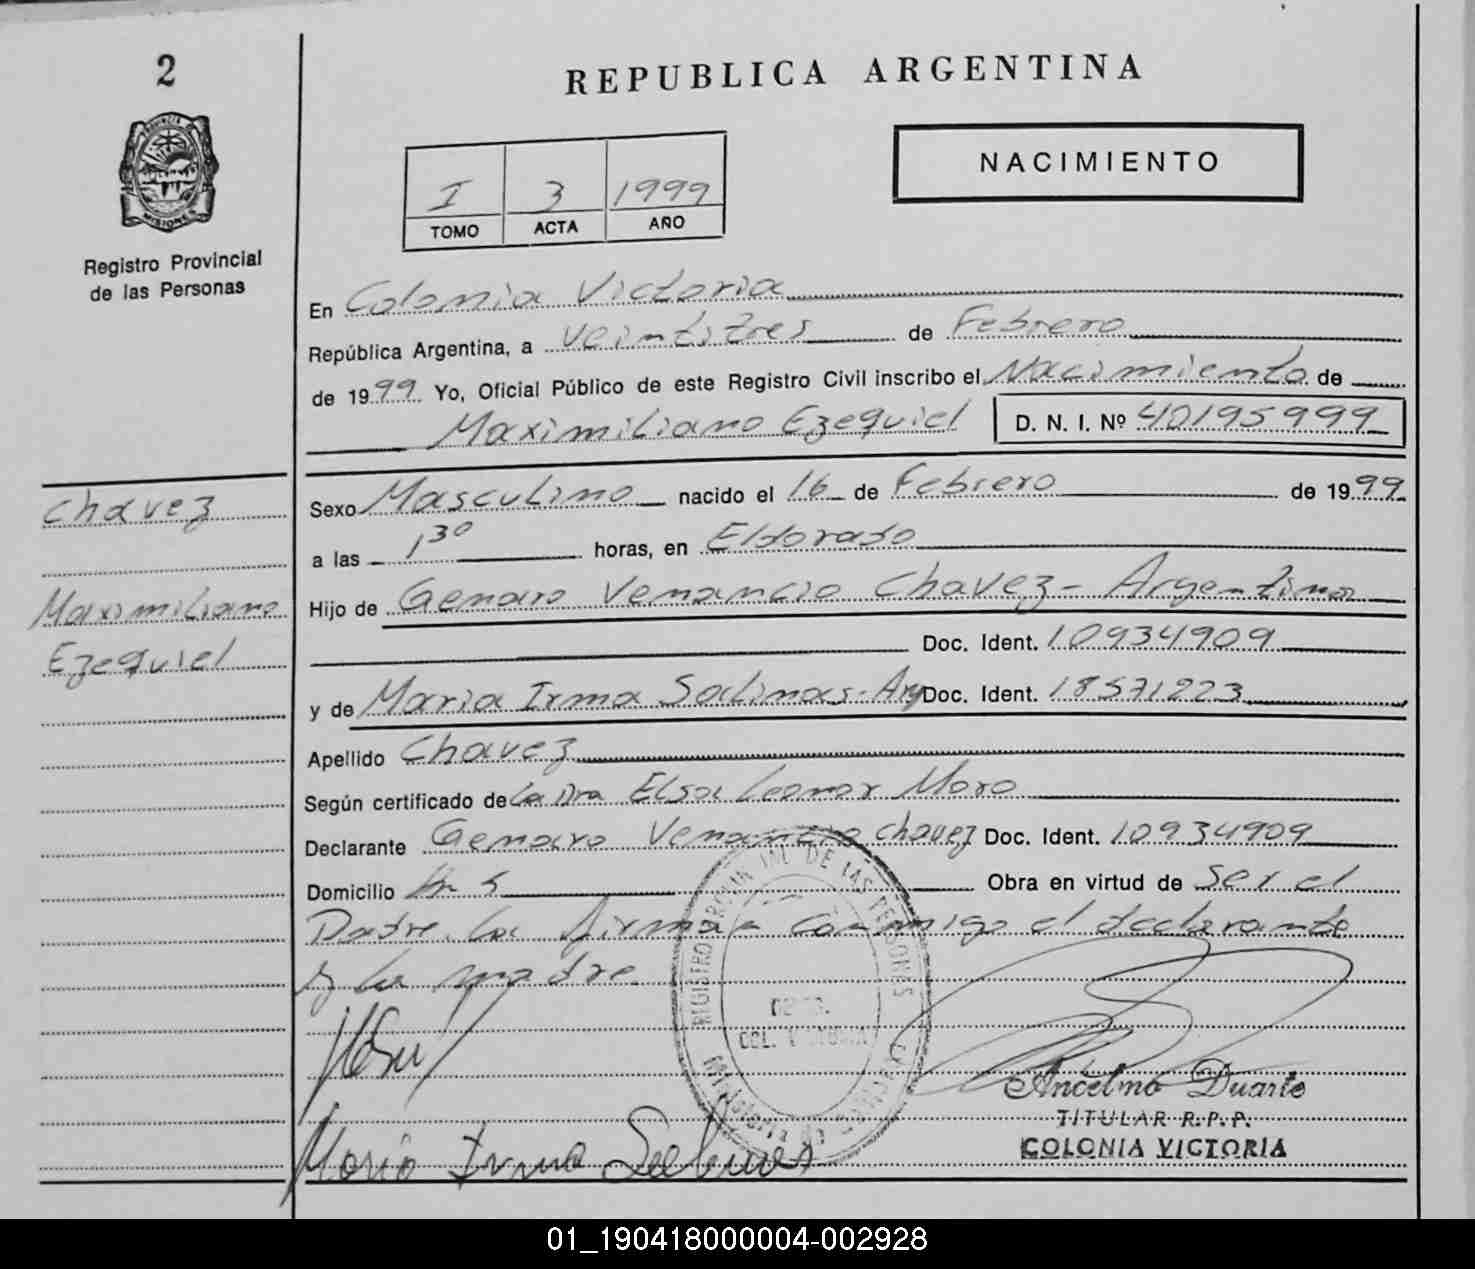 2
REPUBLICA ARGENTINA
PROVINCIA DE
MISIONES
Registro Provincial
de las Personas
NACIMIENTO
I 3 1999
TOMO ACTA AÑO
En Colonia Victoria
República Argentina, a veintitres de Febrero
de 1999 Yo, Oficial Público de este Registro Civil inscribo el Nacimiento de
Maximiliano Ezequiel D. N. I. Nº 40195999
Chavez
Maximiliano
Ezequiel
Sexo Masculino nacido el 16 de Febrero de 1999
a las 1³⁰ horas, en Eldorado
Hijo de Genaro Venancio Chavez - Argentino
Doc. Ident. 10934909
y de Maria Irma Salinas - Arg Doc. Ident. 18571223
Apellido Chavez
Según certificado de la Dra Elsa Leonor Moro
Declarante Genaro Venancio Chavez Doc. Ident. 10934909
Domicilio Obra en virtud de ser el
Padre. La firman conmigo el declarante
y la madre.
REGISTRO PROVINCIAL DE LAS PERSONAS
COL. VICTORIA
Ministerio de Gobierno
Maria Irma Salinas
Ancelmo Duarte
TITULAR R.P.P.
COLONIA VICTORIA
01_190418000004-002928